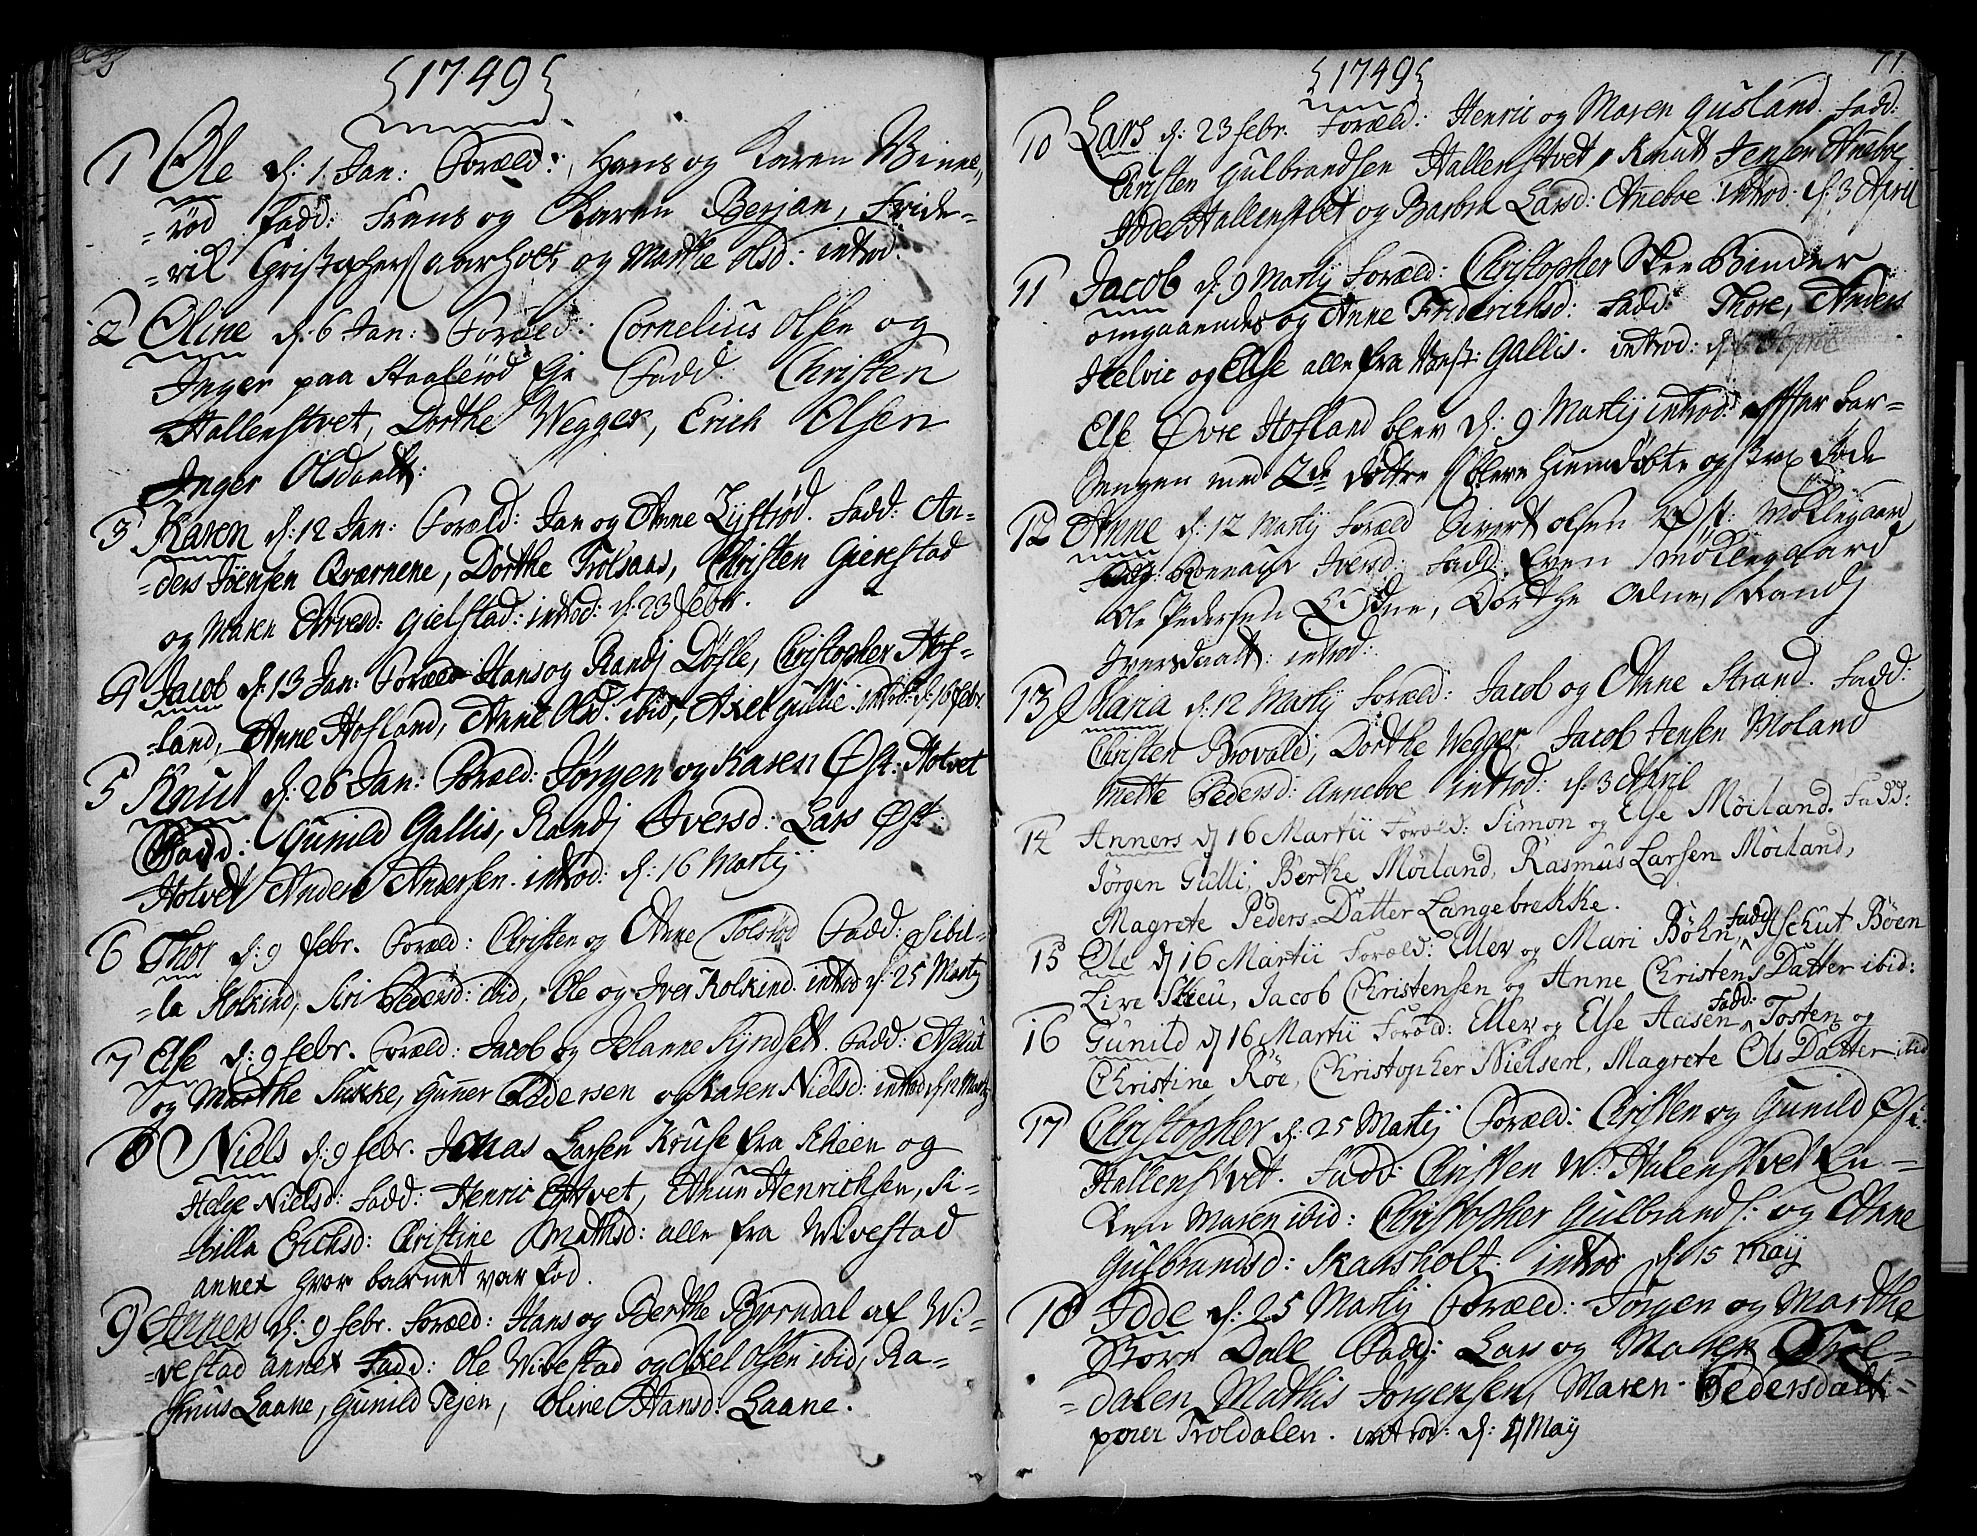 1749
1 Ole d: 1 Jan: Foræld: Hans og Karen Binne,
=rød Fadd: Frens og Karen Berjan, Fride-
=rik Aarholt og Marthe Olsd: introd:
2 Oline d: 6 Jan: Foræld: Cornelius Olsen og
Inger paa Staalerød Eje Fadd: Christen
Hallenstvet, Dorthe Wegger, Erich Olsen
Inger Olsdaatt:
3 Karen d: 12 Jan: Foræld: Jan og Anne Lystrød. Fadd: An-
=ders Joensen Qværnene, Dorthe Trolsaas, Christen Gierestad
og Maren Arvesd: Gielstad: introd: d: 23 Febr.
4 Jacob d: 13 Jan: Foræld Hans og Randj Døfle, Christopher Hof-
=land, Anne Hofland, Anne Olsd. ibid, Axel Gullie. introd: d: 16 febr
5 Knut d: 26 Jan: Foræld: Jørgen og Karen Øst: Holvet
Fadd: Gunild Gallis, Randj Iversd: Lars Øst:
Holvet Anders Andersen. introd: d: 16 Martij
6 Thor d: 9 febr. Foræld: Christen og Anne Tolsrød Fadd: Sibil-
=la Kolkind, Siri Pedersd: ibid, Ole og Iver Kolkind. introd d: 25 Martij
7 Else d: 9 febr. Foræld: Jacob og Johanne Syndset. Fadd: Aslut
og Marthe Sukke, Gunner Pedersen og Karen Nielsd: introd d: 12 Martij
8 Niels d: 9 febr. Jonas Larsen Kruse fra Scheen og
Helge Nielsd: Fadd: Henric Eftvet, Amun Henrichsen, Si-
=billa Erichsd: Christine Mathisd: alle fra Wivestad
annex hvor barnet var fød.
9 Anners d: 9 febr. Foræld: Hans og Berthe Bjørndal af Wi-
=vestad annex Fadd: Ole Wivestad og Axel Olsen ibid, Ra-
smus Laane, Gunild Tejen, Oline Hansd: Laane.
71
1749
10 Lars d: 23 febr. Foræld: Henric og Maren Gusland. Fadd:
Christen Gulbrandsen Hallenstvet, Knut Jensen Aneboe,
Idde Hallenstvet og Barbra Larsd: Aneboe introd: d: 3 April
11 Jacob d: 9 Martij Foræld: Christopher Skee Binder
omgaaendes og Anne Friderichsd: Fadd: Thore, Anders
Helvic og Else alle fra Vest: Gallis. introd: d:
Else Øvre Hofland blev d: 9 Martij introd: effter bar-
sengen med 2de døttre bleve hiemdøbte og strax døde
12 Anne d: 12 Martij Foræld Sivert Olsen Møllegaard
og Ronnaug Iversd: Fadd: Even Møllegaard
Ole Pedersen Dorthe Odne, Randj
Iversdaatt: introd:
13 Maria d: 12 Martij Foræld: Jacob og Anne Strand. Fadd:
Christen Brovald, Dorthe Wegger, Jacob Jensen Moland
Mette Pedersd: Anneboe introd: d: 3 April
14 Anners d 16 Martii Foræld: Simon og Else Møiland. Fadd:
Jørgen Galli, Berthe Møiland, Rasmus Larsen Møiland,
Magrete Peders=Datter Langebrekke.
15 Ole d 16 Martii Foræld: Ellev og Mari Bøhn, Fadd: Aschut Böen
Live Skeu, Jacob Christensen og Anne Christens Datter ibid:
16 Gunild d 16 Martii Foræld: Ellev og Else Aasen Fadd: Tosten og
Christine Røe, Christopher Nielsen, Magrete Ols Datter ibid
17 Christopher d: 25 Martij Foræld: Christen og Gunild Øst:
Hallenstvet. Fadd: Christen W: Halenstvet
Maren ibid: Christopher Gulbrands: og Anne
Gulbrandsd: Skaasholt: introd d: 15 Maij
18 Idde d: 25 Martij Foræld: Jørgen og Marthe
Store Dall Fadd: Lars og Maren Trol-
=dalen Mathis Jørgensen, Maren Pedersdatt=
Troldalen. introd: d: 4 Maij